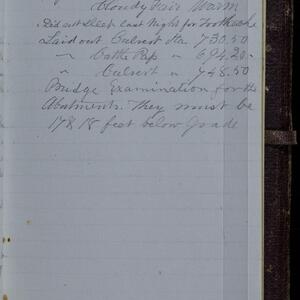 Cloudy Fair Warm
Did not sleep last Night for Toothache
Laid out Culvert Sta. 730.50
" Cattle Pass " 694.20
" Culvert " 748.50
Bridge Examination for the
Abutments. They must be
17 & 18 feet below Grade